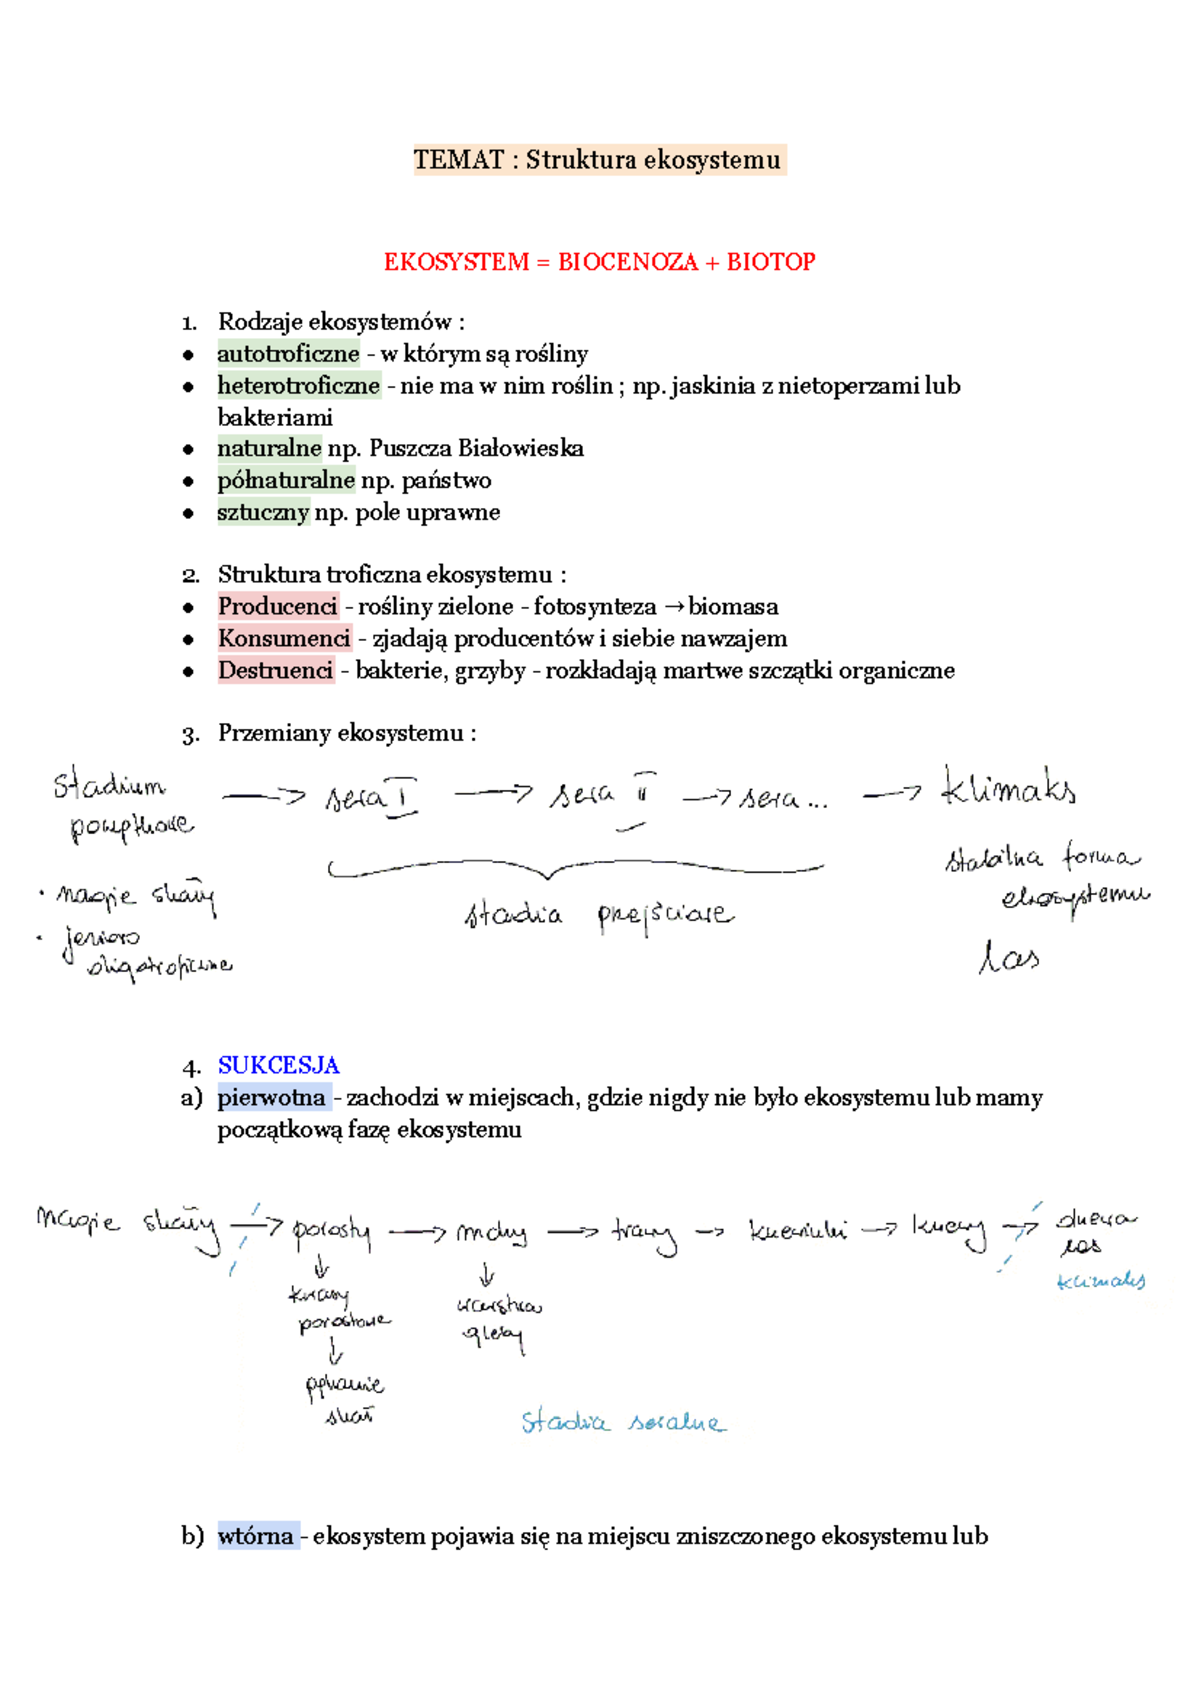 TEMAT : Struktura ekosystemu
EKOSYSTEM = BIOCENOZA + BIOTOP
1. Rodzaje ekosystemów :
● autotroficzne - w którym są rośliny
● heterotroficzne - nie ma w nim roślin ; np. jaskinia z nietoperzami lub
bakteriami
● naturalne np. Puszcza Białowieska
● półnaturalne np. państwo
● sztuczny np. pole uprawne
2. Struktura troficzna ekosystemu :
● Producenci - rośliny zielone - fotosynteza → biomasa
● Konsumenci - zjadają producentów i siebie nawzajem
● Destruenci - bakterie, grzyby - rozkładają martwe szczątki organiczne
3. Przemiany ekosystemu :
Stadium → sera I → sera II → sera ... → klimaks
początkowe
stabilna forma
ekosystemu
• nagie skały
stadia przejściowe
• jezioro
oligotroficzne
las
4. SUKCESJA
a) pierwotna - zachodzi w miejscach, gdzie nigdy nie było ekosystemu lub mamy
początkową fazę ekosystemu
nagie skały → porosty → mchy → trawy → krzewinki → krzewy → drzewa
las
klimaks
↓ ↓
kwasy warstwa
porostowe gleby
↓
pękanie
skał
stadia seralne
b) wtórna - ekosystem pojawia się na miejscu zniszczonego ekosystemu lub